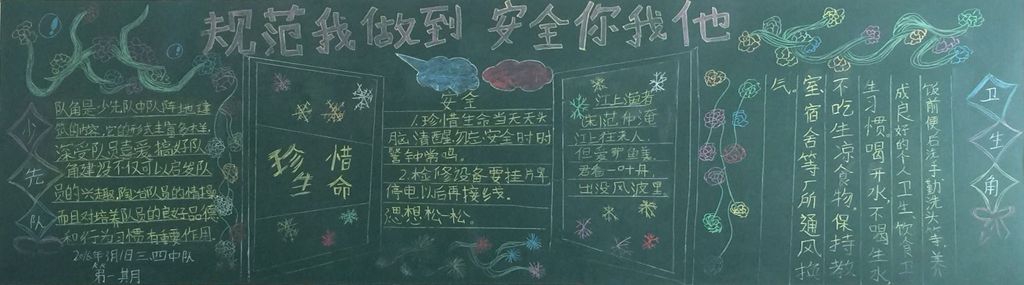 规范我做到 安全你我他
少先队
队角是少先队中队阵地建
筑的内容,它的形式丰富多样,
深受队员喜爱.搞好队
角建设不仅可以启发队
员的兴趣,陶冶队员的情操
而且对培养队员的良好品德
和行为习惯有重要作用.
2016年3月1日三.四中队
第一期
珍惜
生命
安全
1.珍惜生命当天天头
脑清醒勿忘安全时时
警钟常鸣。
2.检修设备要挂片平
停电以后再接线。
思想松一松。
江上渔者
宋范仲淹
江上往来人
但爱鲈鱼美
君看一叶舟
出没风波里
卫生角
饭前便后洗手勤洗头等,养
成良好的个人卫生、饮食卫
生习惯。喝开水,不喝生水
不吃生凉食物。保持教
室宿舍等厕所通风
气。